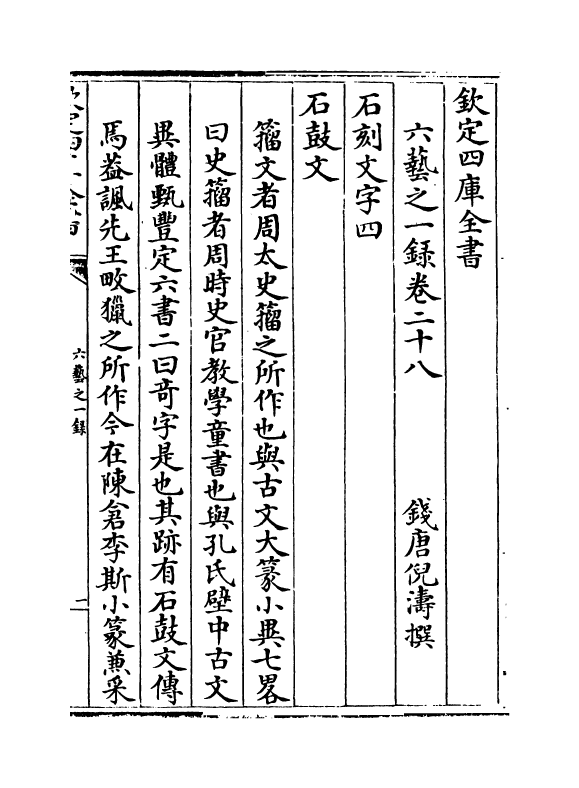 欽定四庫全書
六藝之一録卷二十八
錢唐倪濤撰
石刻文字四
石鼓文
籀文者周太史籀之所作也與古文大篆小異七畧
曰史籀者周時史官教學童書也與孔氏壁中古文
異體甄豐定六書二曰竒字是也其跡有石鼓文傳
焉葢諷先王畋獵之所作今在陳倉李斯小篆兼采
欽定四庫全書
六藝之一録
二